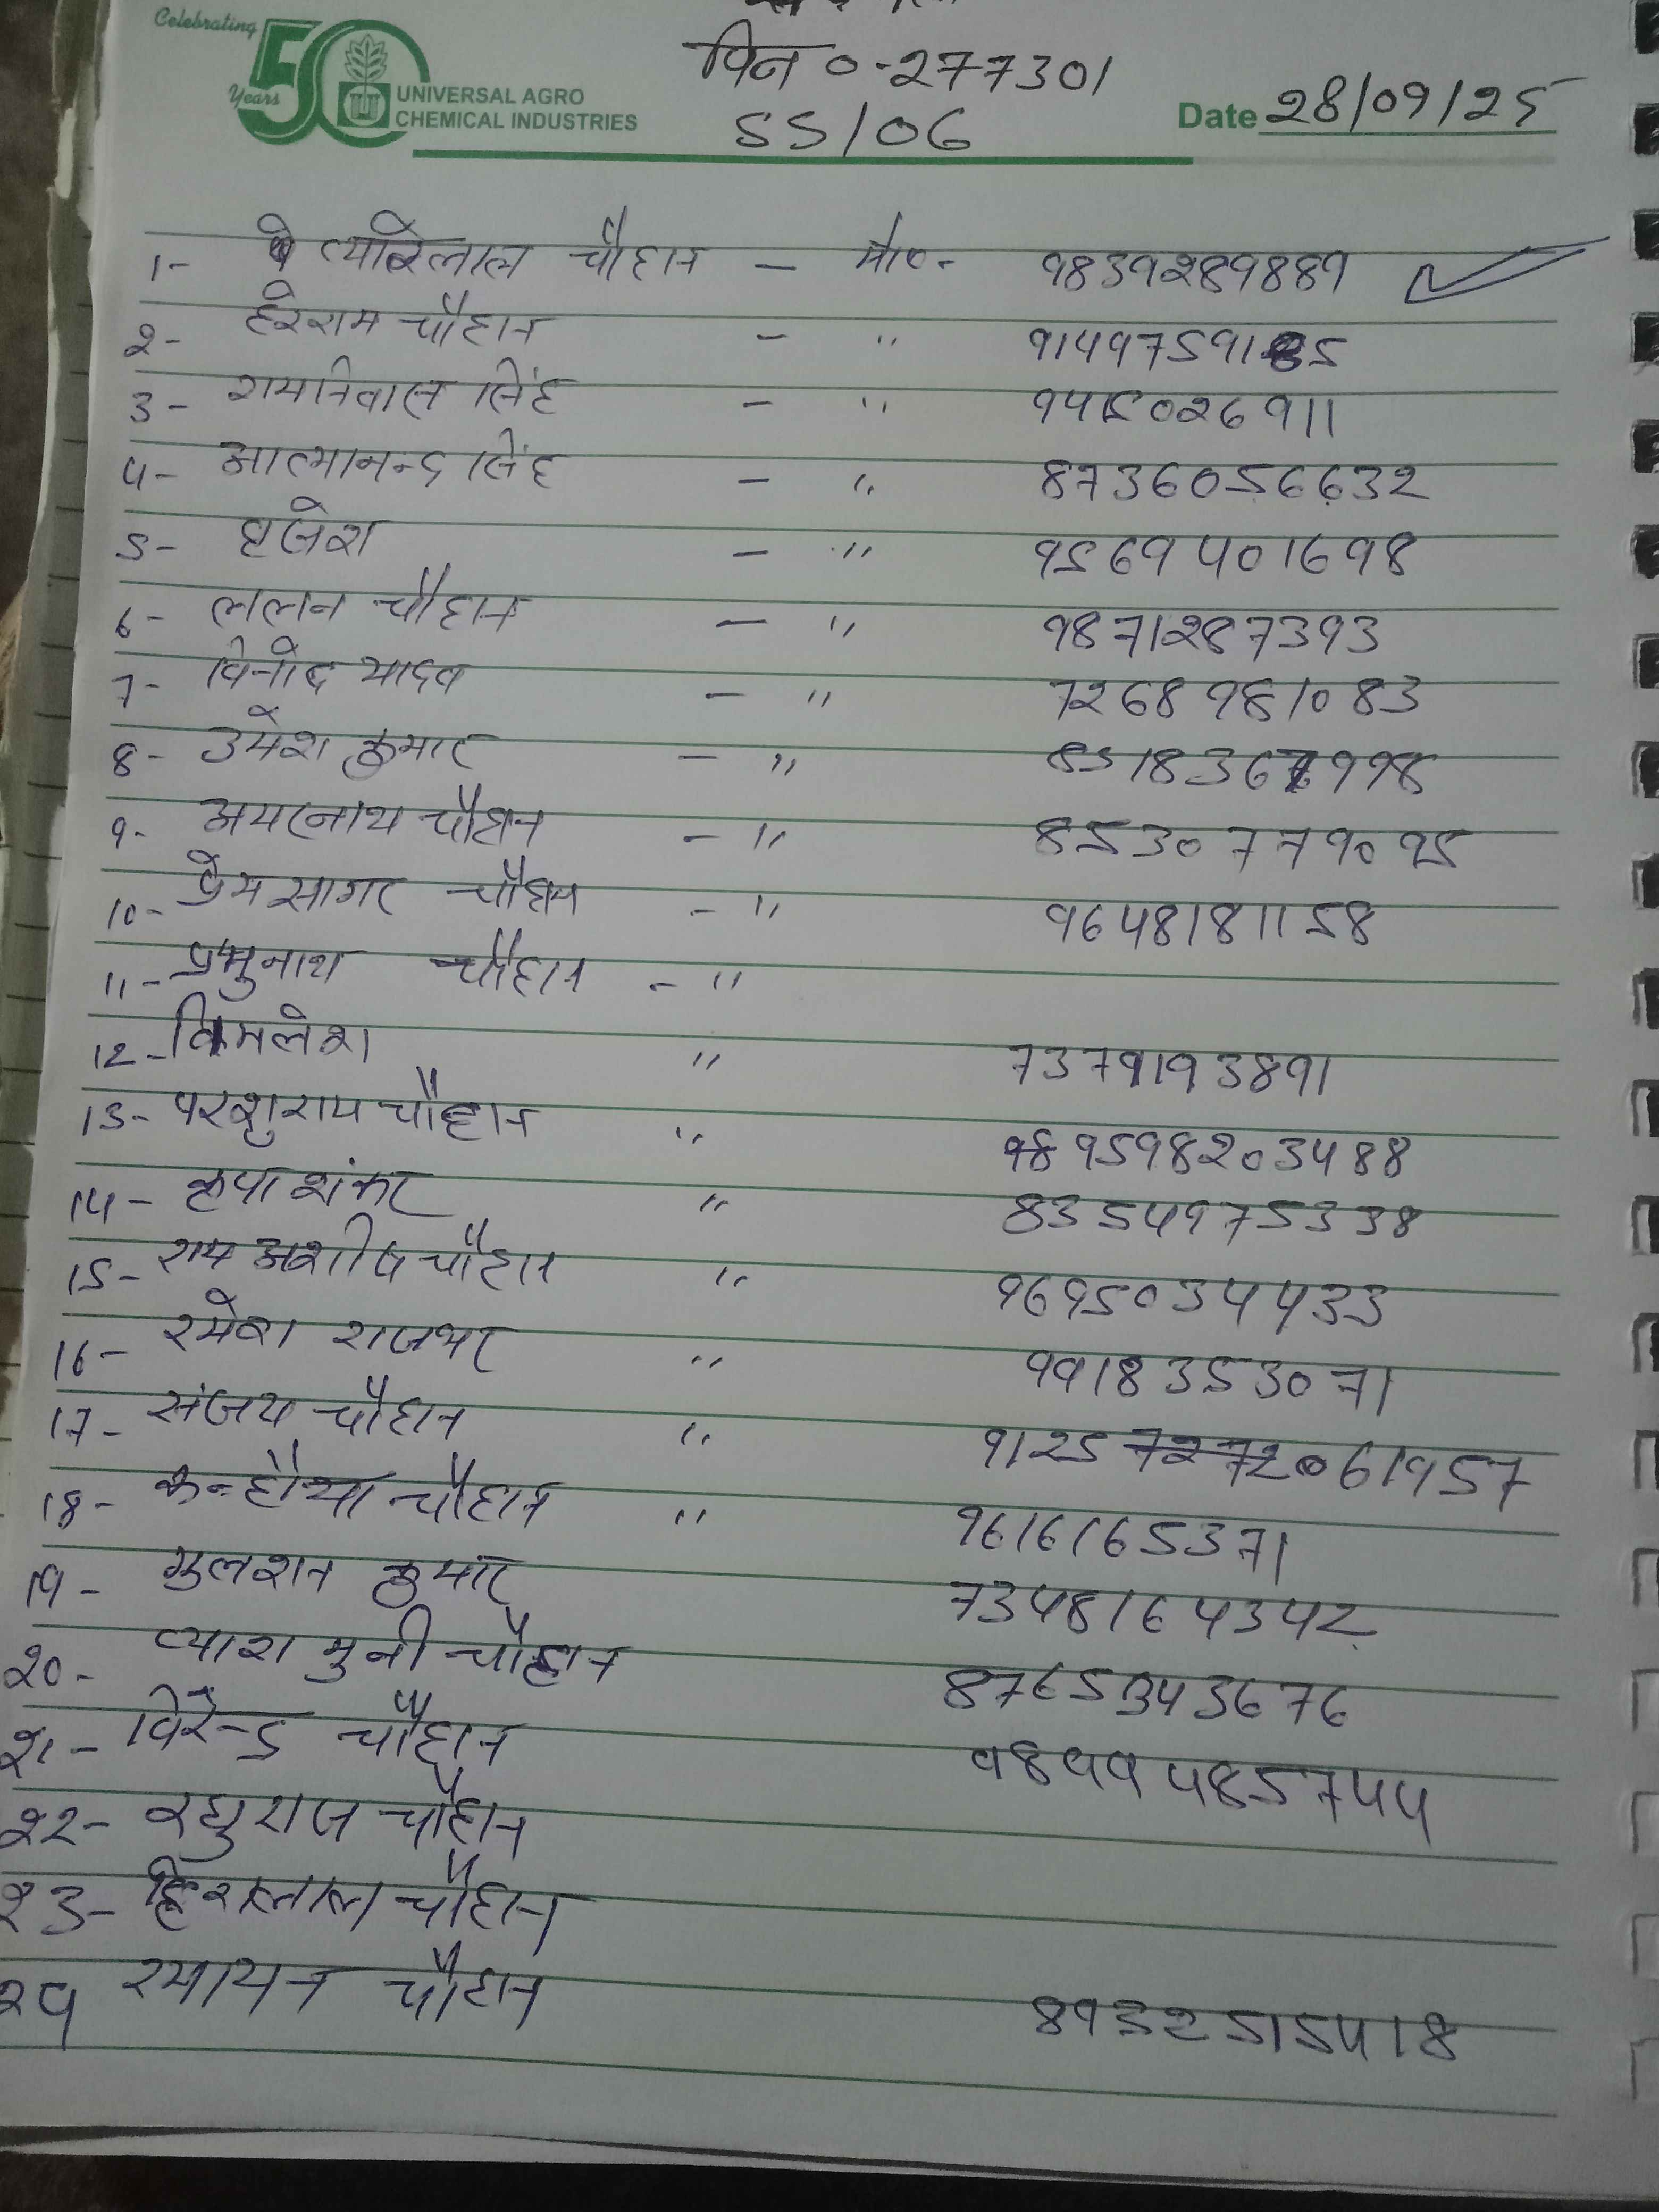 Celebrating
50
Years
UNIVERSAL AGRO
CHEMICAL INDUSTRIES
पिन ०-277301
SS/06
Date 28/09/25
1- प्यारेलाल चौहान - मो०- 9839289889
2- हरेराम चौहान - " 9149759185
3- रामनिवास सिंह - " 9415026911
4- आत्मानन्द सिंह - " 8736056632
5- बृजेश - " 9569401698
6- ललन चौहान - " 9871287393
7- विनोद यादव - " 7268981083
8- उमेश कुमार - " 8518367998
9- अमरनाथ चौहान - " 8530779095
10- प्रेमसागर चौहान - " 9648181158
11- प्रभुनाथ चौहान - "
12- विमलेश " 7379193891
13- परशुराम चौहान " 9598203488
14- कृपा शंकर " 8354975338
15- राम अशीष चौहान " 9695034433
16- रमेश राजभर " 9918353071
17- संजय चौहान " 9125 72 72061957
18- कन्हैया चौहान " 9616165371
19- गुलशन कुमार 7348164342
20- व्यास मुनी चौहान 8765343676
21- विरेन्द्र चौहान 9899485744
22- रघुराज चौहान
23- हिरालाल चौहान
24 रमायन चौहान 8932515418